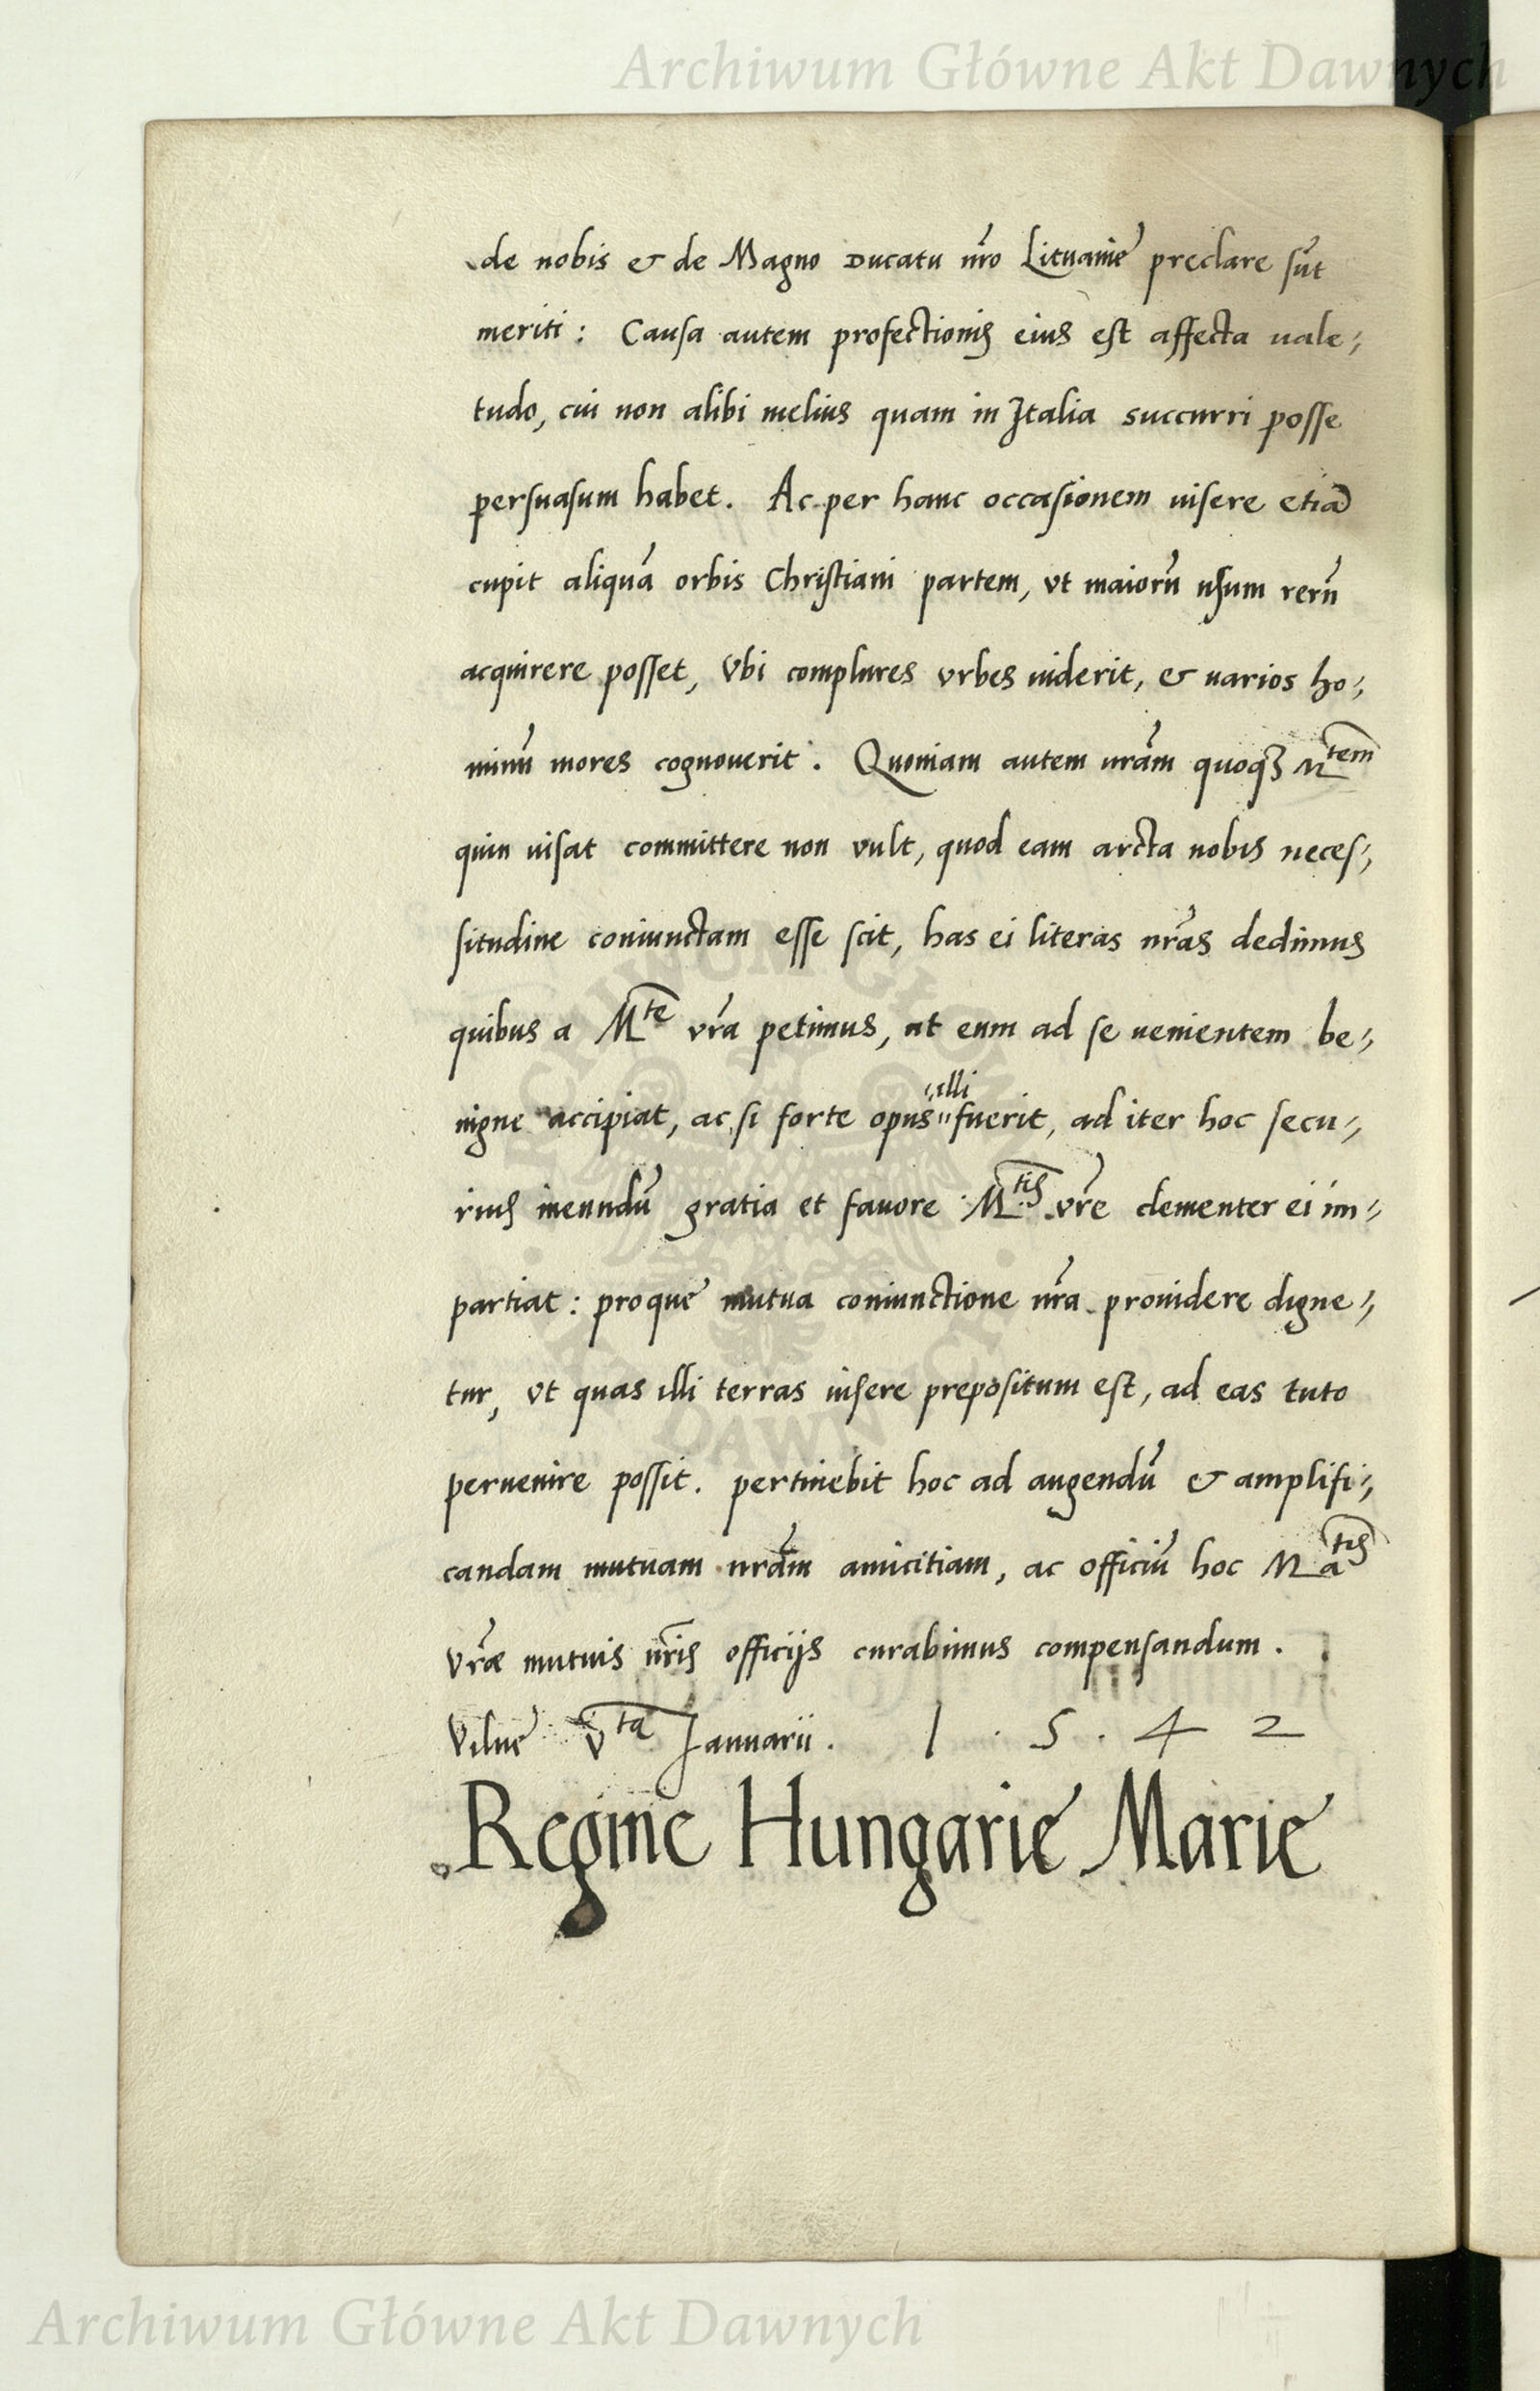 Archiwum Główne Akt Dawnych
de nobis & de Magno Ducatu nr̃o Lituanie preclare sũt
meriti : Causa autem profectionis eius est affecta uale,,
tudo, cui non alibi melius quam in Italia succurri posse
persuasum habet. Ac per hanc occasionem uisere etiã
cupit aliquã orbis Christiani partem, vt maiorũ usum rerũ
acquirere posset, Vbi complures vrbes uiderit, & uarios ho,,
minũ mores cognouerit. Quoniam autem urãm quoqꝫ Mtem
quin uisat committere non vult, quod eam arcta nobis neces,,
situdine coniunctam esse scit, has ei literas nrãs dedimus
quibus a Mte vrã petimus, ut eum ad se uenientem be,,
nigne accipiat, ac si forte opus illi fuerit, ad iter hoc secu,,
rius ineundũ gratia et fauore Mtis vrẽ clementer ei im,,
partiat : proque mutua coniunctione nrã prouidere digne,,
tur, vt quas illi terras uisere prepositum est, ad eas tuto
peruenire possit. pertinebit hoc ad augendũ & amplifi,,
candam mutuam nrãm amicitiam, ac officiũ hoc Matis
Vræ mutuis nrĩs officijs curabimus compensandum.
Vilne Vta Januarii. 1 . 5 . 4 2
Regine Hungarie Marie
ARCHIWUM GŁÓWNE AKT DAWNYCH
Archiwum Główne Akt Dawnych